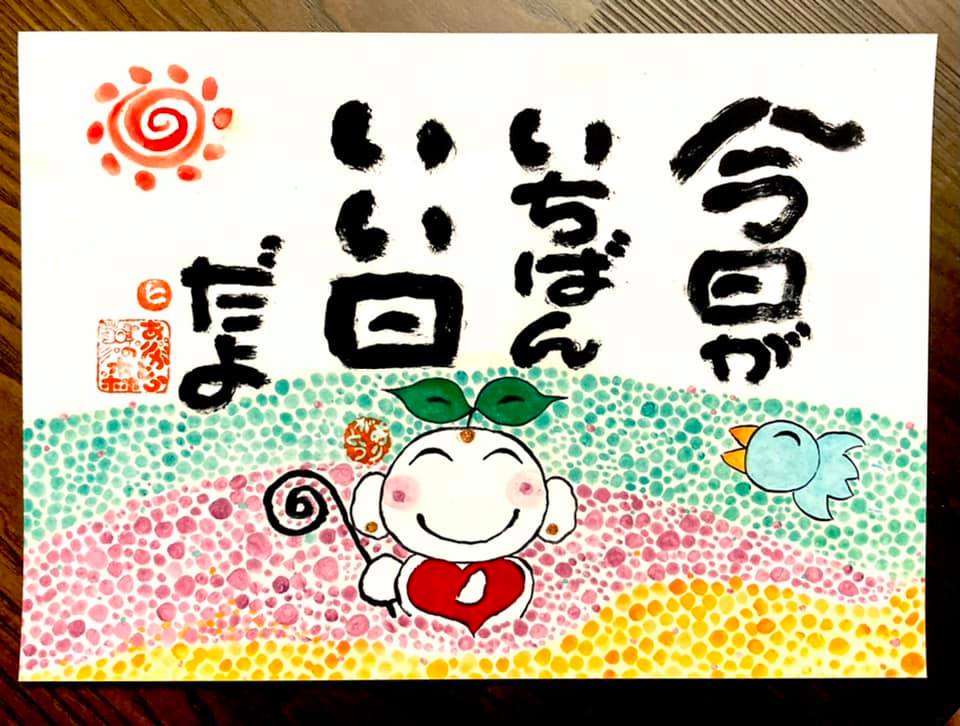 今日が
いちばん
いい日
だよ